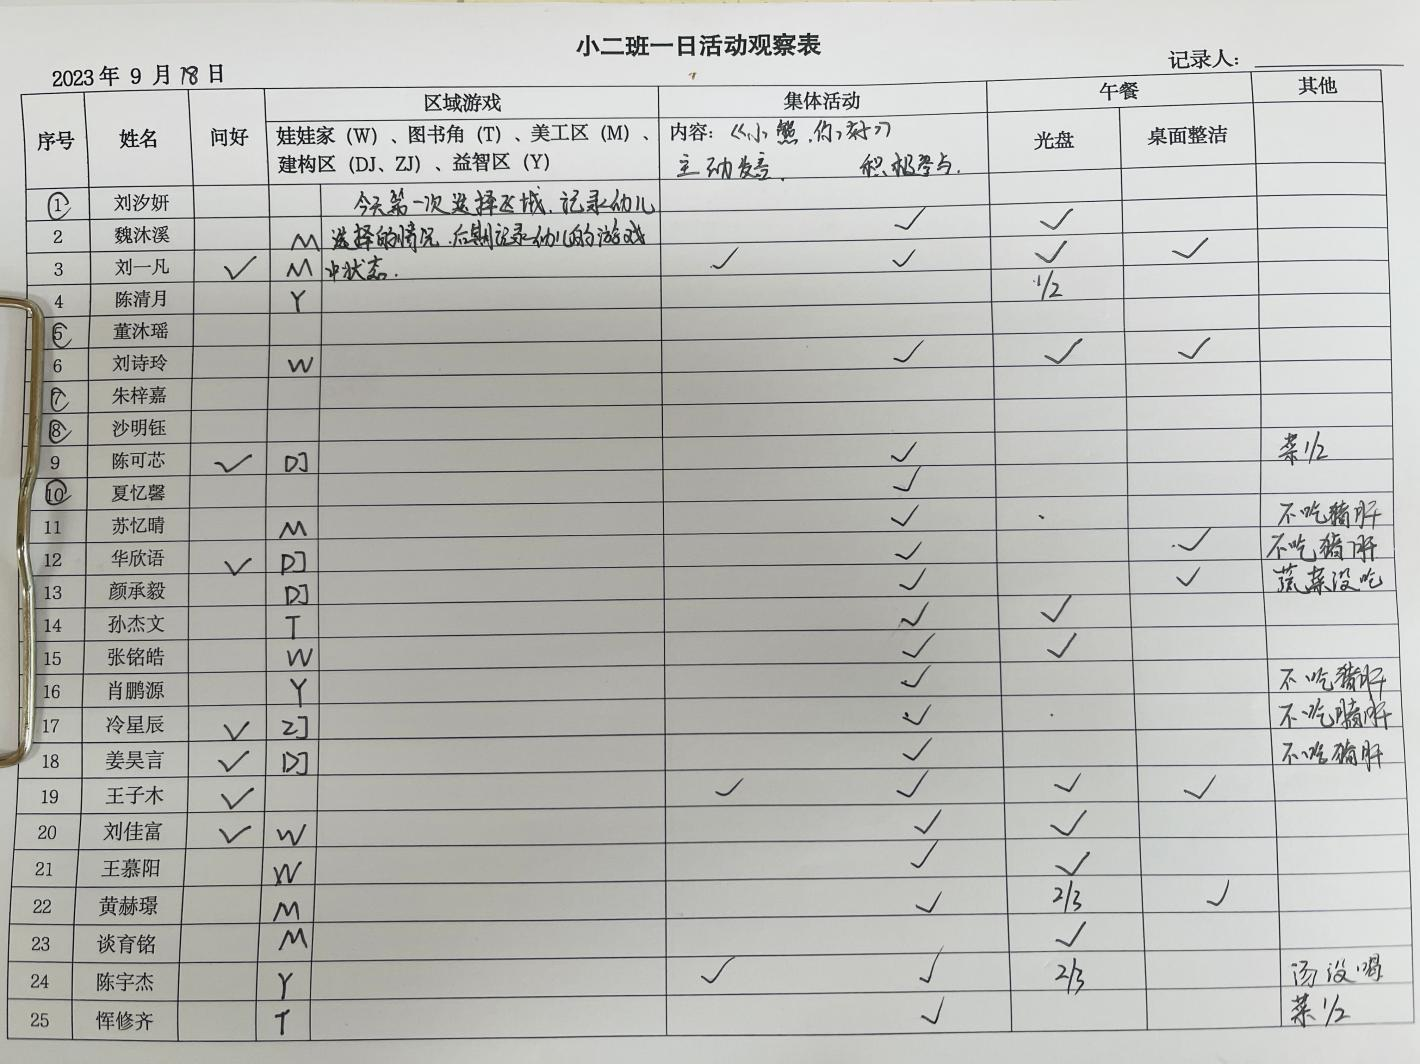 小二班一日活动观察表
2023 年 9 月 18 日 记录人：
序号 姓名 问好 区域游戏 集体活动 午餐 其他
娃娃家（W）、图书角（T）、美工区（M）、 内容：《小熊,你好》 光盘 桌面整洁
建构区（DJ、ZJ）、益智区（Y） 主动发言. 积极参与.
① 刘汐妍 今天第一次选择区域,记录幼儿
2 魏沐溪 M 选择的情况,后期记录幼儿的游戏 ✓ ✓
3 刘一凡 ✓ M 中状态. ✓ ✓ ✓ ✓
4 陈清月 Y 1/2
⑤ 董沐瑶
6 刘诗玲 W ✓ ✓ ✓
⑦ 朱梓嘉
⑧ 沙明钰
9 陈可芯 ✓ DJ ✓ 菜1/2
⑩ 夏忆馨 ✓
11 苏忆晴 M ✓ 不吃猪肝
12 华欣语 ✓ DJ ✓ ✓ 不吃猪肝
13 颜承毅 DJ ✓ ✓ 蔬菜没吃
14 孙杰文 T ✓ ✓
15 张铭皓 W ✓ ✓
16 肖鹏源 Y ✓ 不吃猪肝
17 冷星辰 ✓ ZJ ✓ 不吃猪肝
18 姜昊言 ✓ DJ ✓ 不吃猪肝
19 王子木 ✓ ✓ ✓ ✓ ✓
20 刘佳富 ✓ W ✓ ✓
21 王慕阳 W ✓ ✓
22 黄赫璟 M ✓ 2/3 ✓
23 谈育铭 M ✓
24 陈宇杰 Y ✓ ✓ 2/3 汤没喝
25 恽修齐 T ✓ 菜1/2